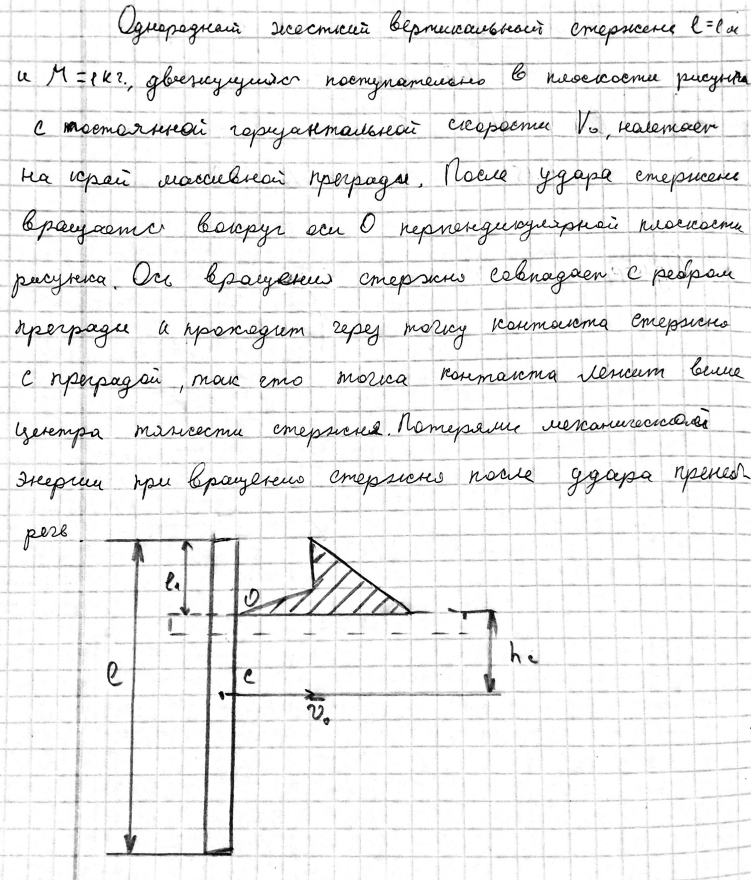 Однородный жесткий вертикальный стержень l=1м
и M=1кг., движущийся поступательно в плоскости рисунка
с постоянной горизонтальной скорости V₀, налетает
на край массивной преграды. После удара стержень
вращается вокруг оси O перпендикулярной плоскости
рисунка. Ось вращения стержня совпадает с ребром
преграды и проходит через точку контакта стержня
с преградой, так что точка контакта лежит выше
центра тяжести стержня. Потерями механической
энергии при вращению стержня после удара пренеб
речь
l₁
O
l
c
hc
v̅₀